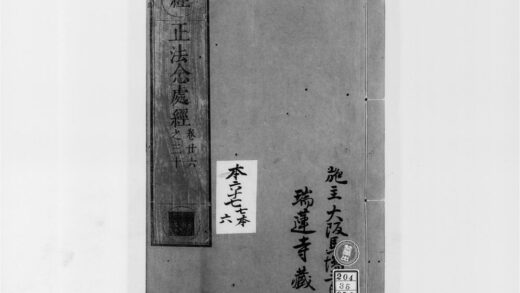 經
正法念處經
卷廿六
之三十
本六十七
七本
六
施主大阪馬場
瑞蓮寺藏
204
35